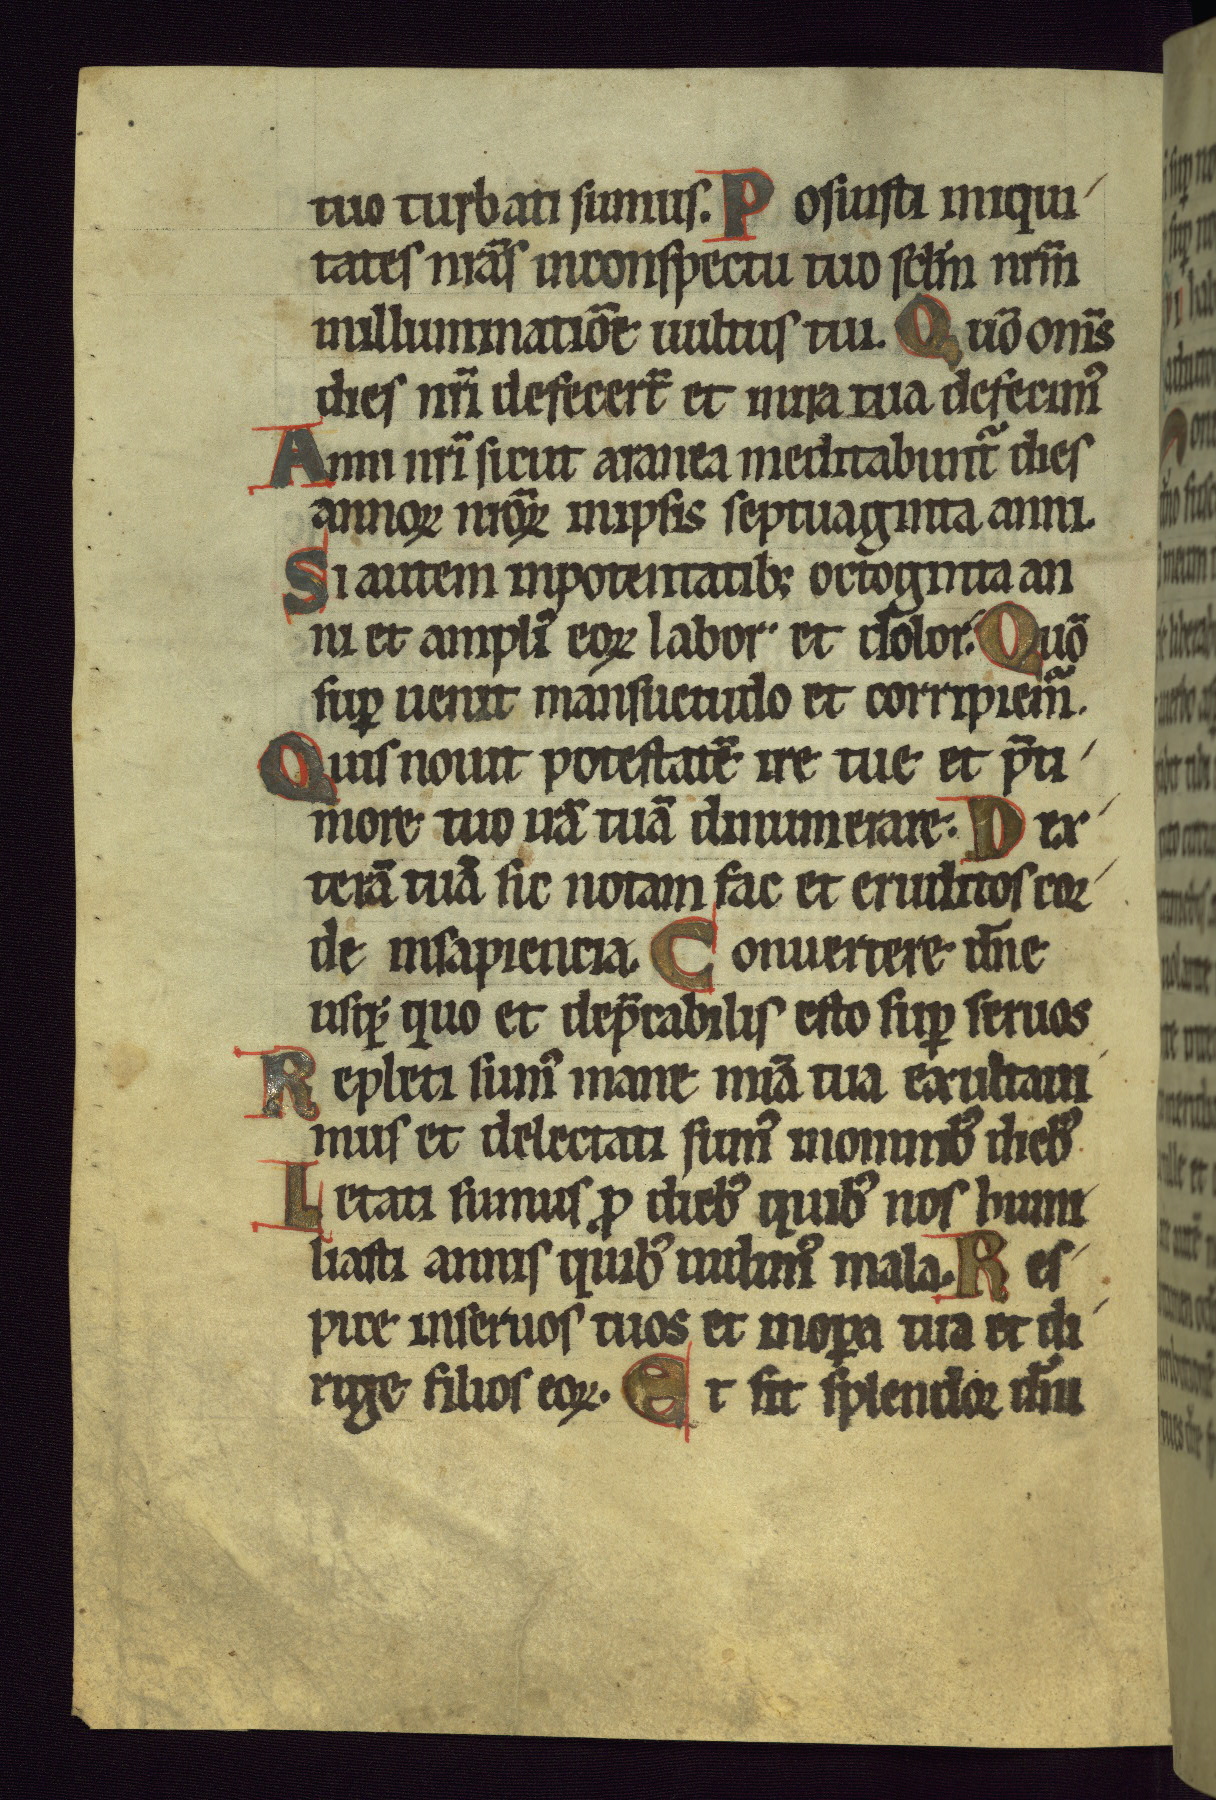 tuo turbati sumus. Posuisti iniqui
tates nr̃as inconspectu tuo scl̃m nrm̃
inilluminatiõe uultus tui. Quõ om̃s
dies nr̃i defecert̃ et inira tua defecim᾿
Anni nr̃i sicut aranea meditabunt̃ dies
annoꝝ nr̃oꝝ inipsis septuaginta anni.
Si autem inpotentatib; octoginta an
ni et ampli᾿ eoꝝ labor et dolor. Quõ
suꝑ uenit mansuetudo et corripiem̃.
Quis nouit potestatẽ ire tue et p̃ ti
more tuo irã tuã dinumerare. Dex
terã tuã sic notam fac et eruditos cor
de insapiencia. Conuertere dñe
usq; quo et dep̃cabilis esto suꝑ seruos
Repleti sum᾿ mane mĩa tua exultaui
mus et delectati sum᾿ inomnib᾿ dieb᾿
Letati sumus ꝓ dieb᾿ quib᾿ nos humi
liasti annis quib᾿ uidim᾿ mala. Res
pice inseruos tuos et inoꝑa tua et di
rige filios eoꝝ. Et sit splendor dñi